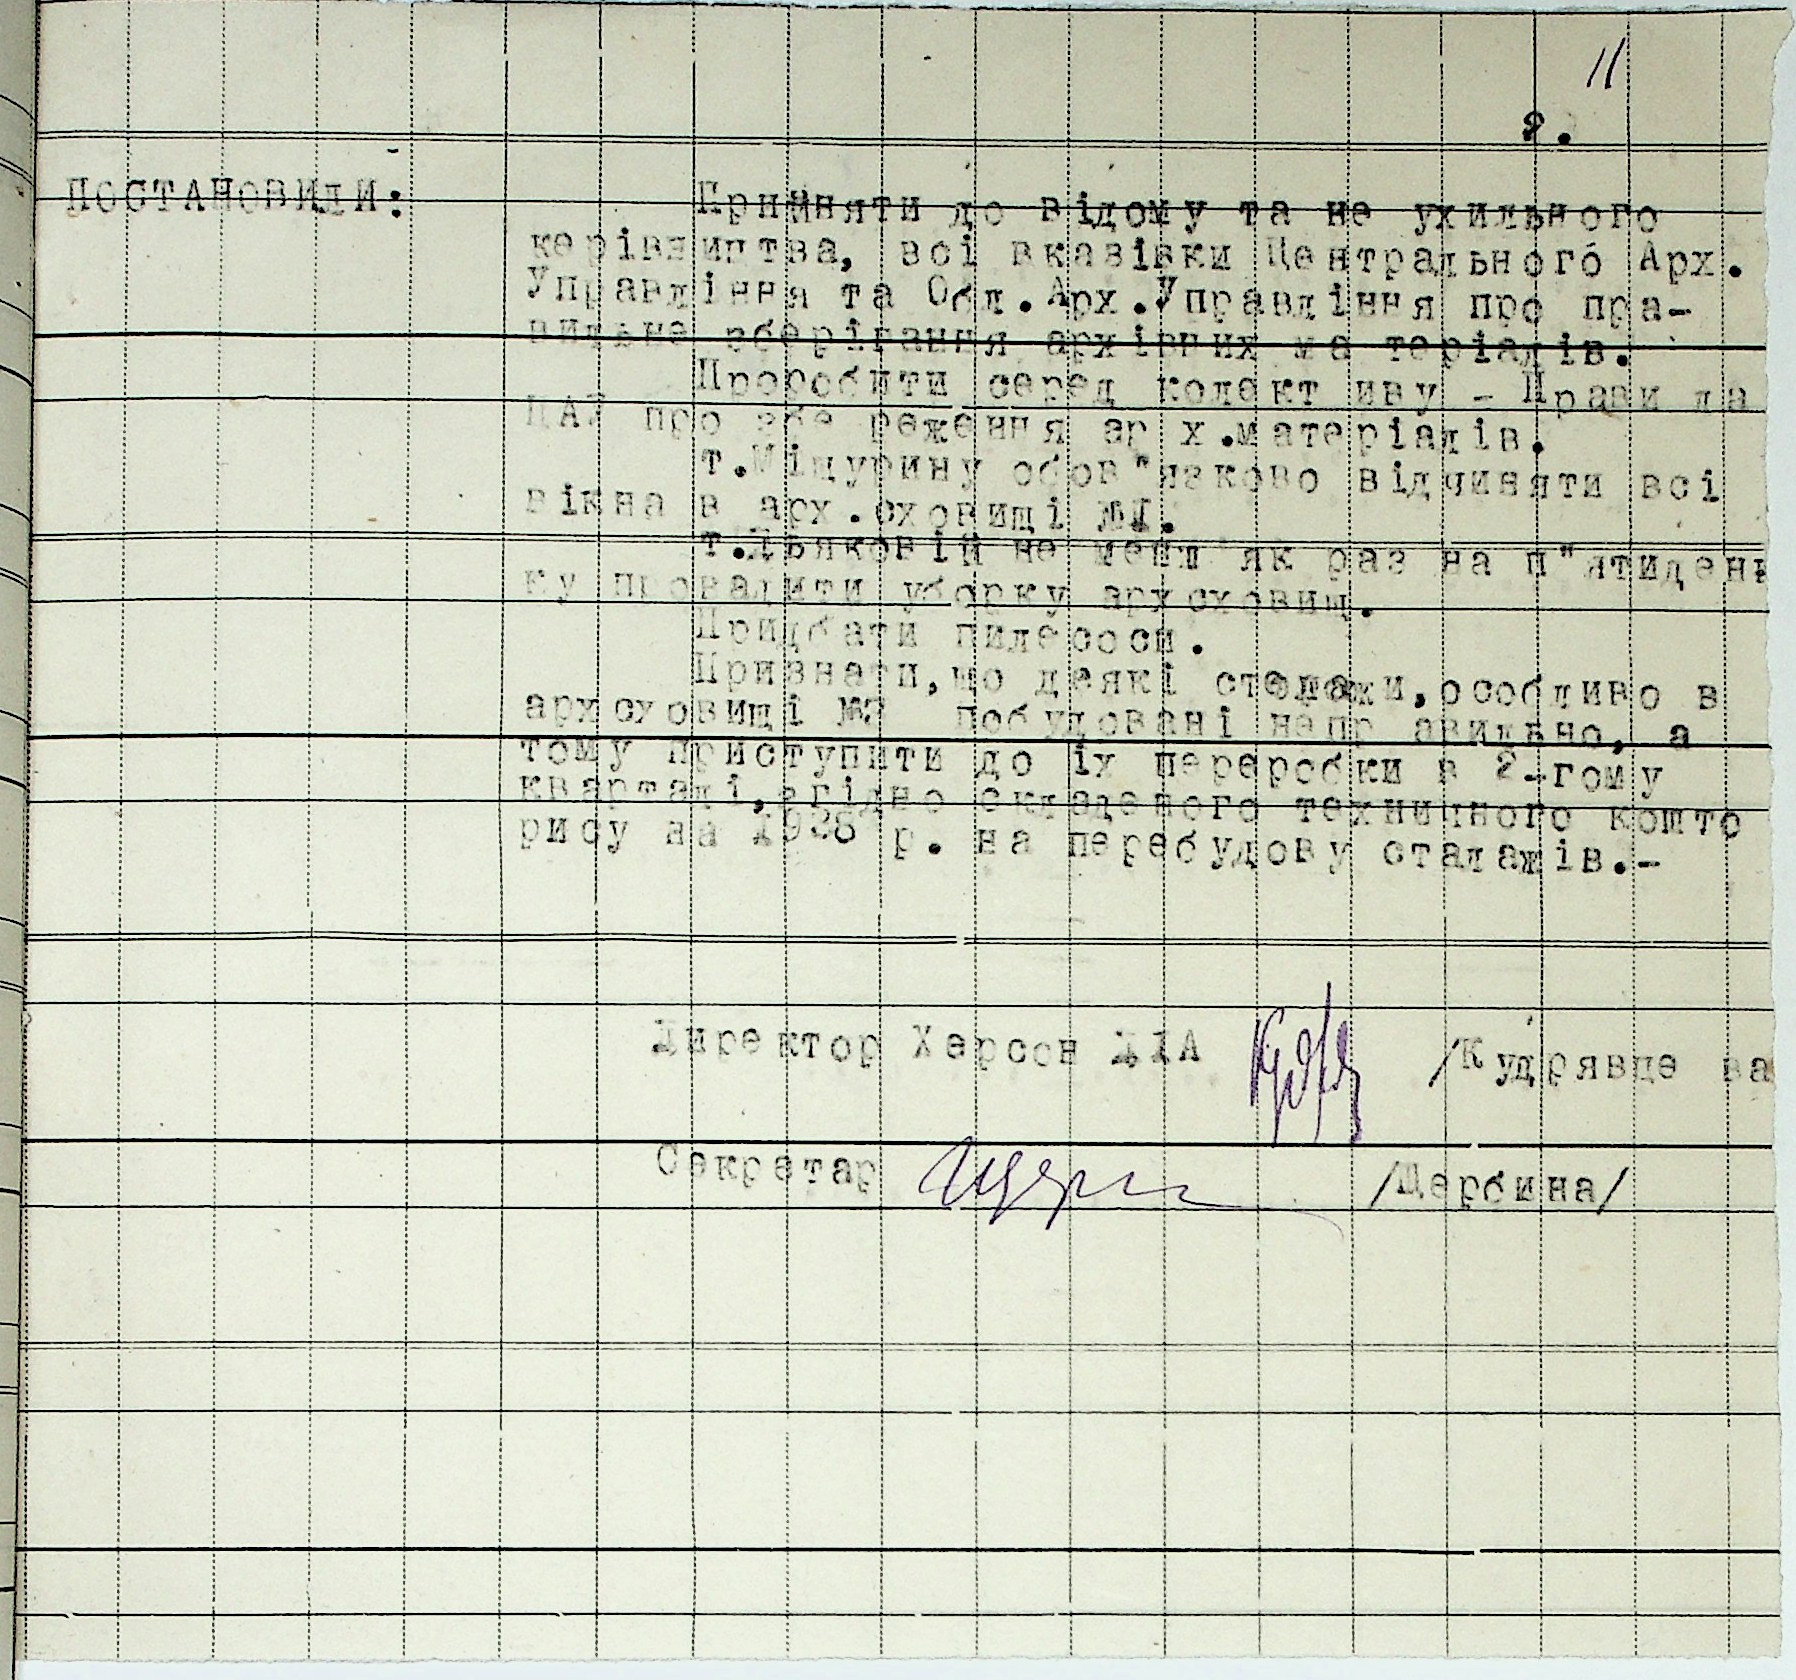 11
2.
ПОСТАНОВИЛИ: Прийняти до відому та не ухильного
керівництва, всі вказівки Центрального Арх.
Управління та Обл.Арх.Управління про пра-
вильне зберігання архівних ма теріалів.
Проробити серед колект иву - Прави ла
ЦАУ про збе реження ар х.матеріалів.
т.Міщурину обов"язково відчиняти всі
вікна в арх.сховищі №І.
т.Дьяковій не менш як раз на п"ятиден
ку провадити уборку архсховищ.
Придбати пилесоси.
Признати,що деякі стелажи,особливо в
архсховищі №2 побудовані непр авильно, а
тому приступити до їх переробки в 2-гому
кварталі,згідно складеного техничного кошто
рису на 1938 р. на перебудову сталажів.-
Директор Херсон ДІА /Кудрявце ва
Секретар /Щербина/